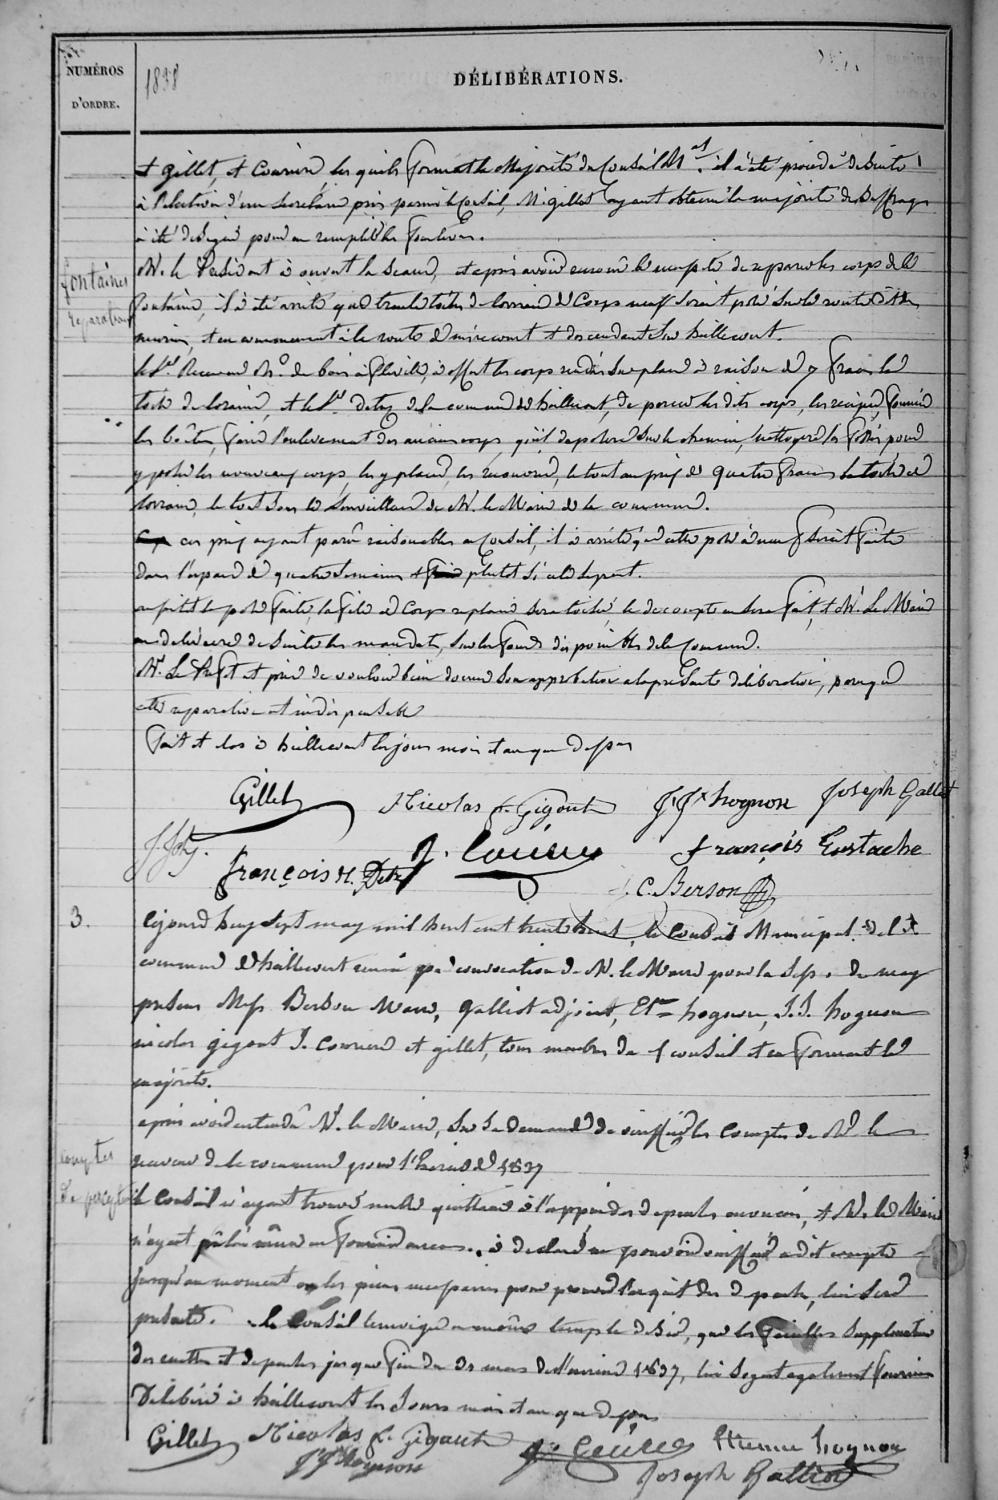 NUMÉROS
D'ORDRE.
1838
DÉLIBÉRATIONS.
et gillet, et Courrier, les quels formant la Majorité du Conseil Mal. il a été procédé de suite
à l'élection d'un secrétaire pris parmi le Conseil, Mr. gillet ayant obtenu la majorité des suffrages
a été désigné pour en remplir les fonctions.
fontaines
réparation
Mr. le Président a ouvert la séance, et après avoir reconnu la nécessité de réparer les corps de la
fontaine, il a été arrêté que trente toises de lorraine de Corps neufs seront posé sur la route
et en commencant à la route de mirecourt et descendant sur hallecourt.
le Sr. Md. de bois à a offert les corps rendus sur place à raison de 7 francs la
toise de loraine, et le Sr. Detez de la commune de de percer les dits corps, les fournir
les boîtes, faire l'enlevement des anciens corps, qu'il deposera sur le chemin, nettoyera les fossés pour
y poser les nouveaux corps, les y placer, les recouvrir, le tout au prix de quatre francs la toise de
lorraine, le tout sous la surveillance de Mr. le Maire de la commune.
ces prix ayant paru raisonables au Conseil, il a arrêté que cette pose à neuf serait faite
dans l'espace de quatre semaines et plutot si cela se peut.
aussitot la pose faite, la file de Corps en place sera toisée, le decompte en sera fait, et Mr. Le Maire
en delivrera de suite les mandats, sur les fonds disponibles de la Commune.
Mr. Le Prefet est prié de vouloir bien donner son approbation a la présente délibération, parceque
cette reparation est indispensable
fait et clos à les jour mois et an que dessus
Gillet Nicolas f. Gigout J. Jh hognon Joseph Galliot
François H. Detz J. Courier François Eustache
J. C. Berson
3.
Cejourd'huy sept may mil huit cent trente huit, le Conseil Municipal de la
commune de réuni par convocation de Mr. le Maire pour la sess. de may
présens Mrs Berson Maire, galliot adjoint, Etne hognon, J.J. hognon
nicolas gigout J. Courrier et gillet, tous membres du Conseil et en formant la
majorité.
comptes
du percepteur
après avoir entendu Mr. le Maire, sur sa demande de vérifier les Comptes de Mr le
receveur de la commune pour l'Exercice 1837
le Conseil n'ayant trouvé nulle quittance à l'appui des depenses annoncées, et Mr. le Maire
n'ayant pu lui même en fournir aucune, a declaré ne pouvoir verifier le dit compte
jusqu'au moment où les pièces necessaires pour prouver l'acquit des depenses, lui sera
presenté. le Conseil temoigne en même temps le desir, que les feuilles supplementaires
des recettes et depenses jusque fin du 31 mars de l'exercice 1837, lui soyent egalement fournies
Délibéré à les Jours mois et an que dessus
Gillet Nicolas f. Gigout J. Courier Etienne hognon
J. J. hognon Joseph Galliot